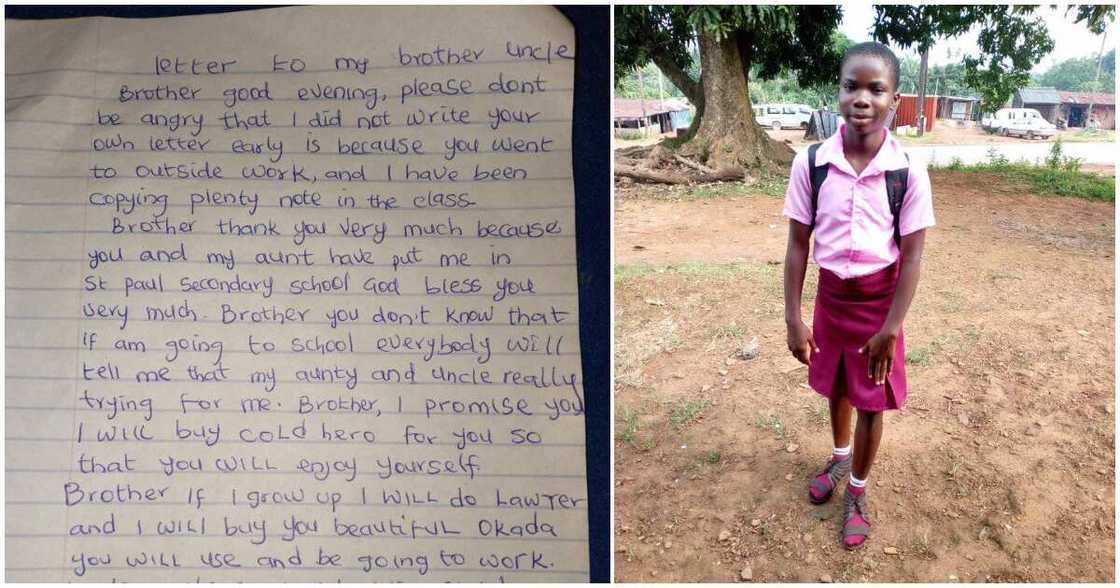 letter to my brother uncle
Brother good evening, please dont
be angry that I did not write your
own letter early is because you went
to outside work, and I have been
copying plenty note in the class
Brother thank you very much because
you and my aunt have put me in
St Paul secondary school God bless you
very much. Brother you don't know that
if am going to school everybody will
tell me that my aunty and uncle really
trying for me. Brother, I promise you
I will buy cold hero for you so
that you will enjoy yourself.
Brother If I grow up I will do Lawyer
and I will buy you beautiful Okada
you will use and be going to work.